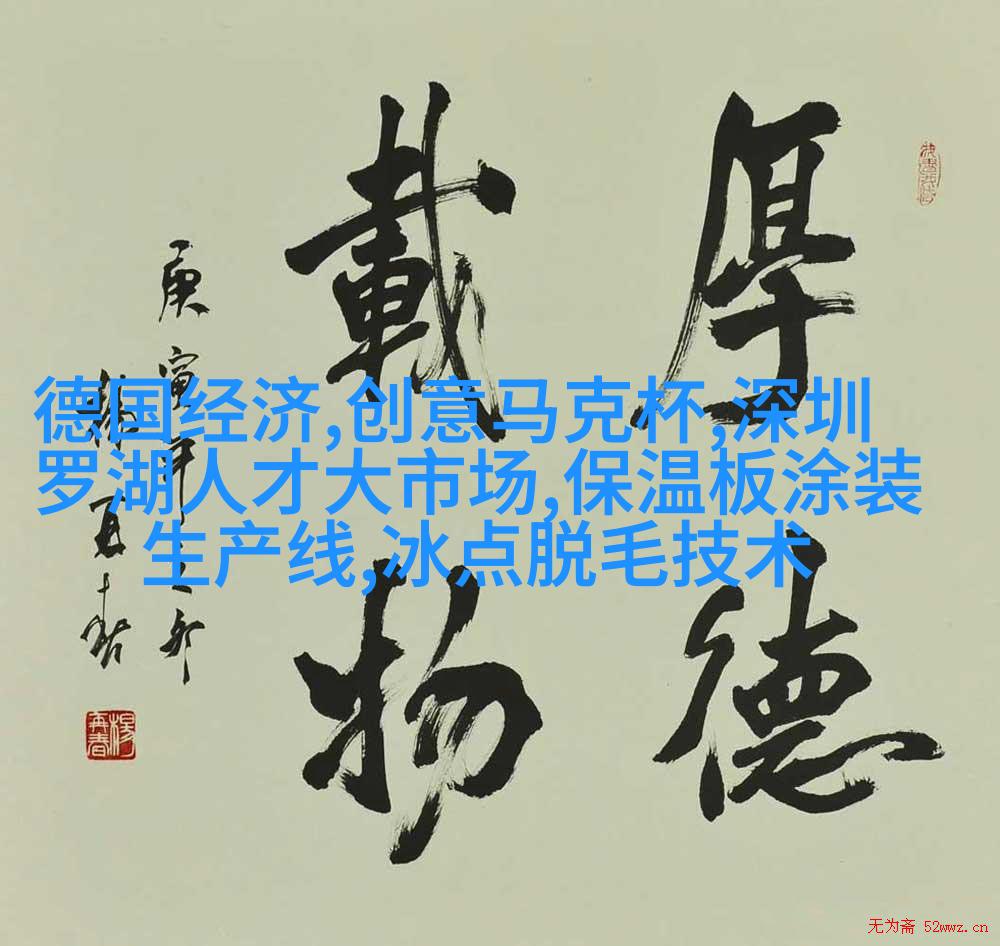 厚德
載物
庚寅年之卯
楊再春
楊再春
德国经济,创意马克杯,深圳
罗湖人才大市场,保温板涂装
生产线,冰点脱毛技术
无为斋 52wwz.cn